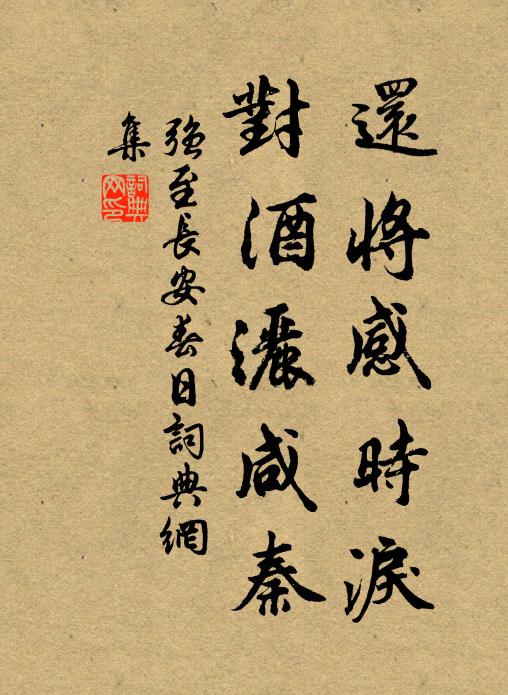 還將感時淚
對酒灑咸秦
強至長安春日詞典網
集
詞典
网印